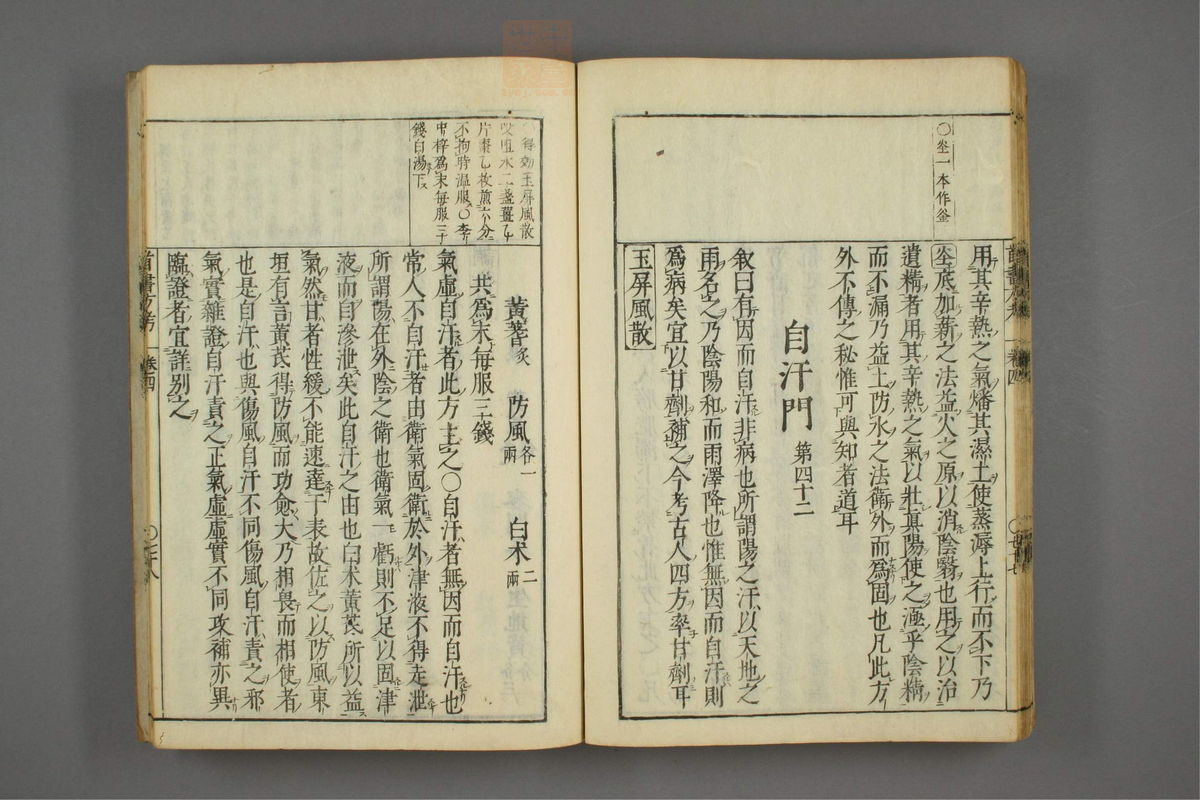 〇坔一本作釡
用其辛熱之氣燔其濕土使蒸溽上行而不下乃
坔底加薪之法益火之原以消陰翳也用之以治
遺精者用其辛熱之氣以壯真陽使之涵乎陰精
而不漏乃益土防水之法衛外而爲固也凡此方
外不傳之秘惟可與知者道耳
自汗門 第四十二
叙曰有因而自汗非病也所謂陽之汗以天地之
雨名之乃陰陽和而雨澤降也惟無因而自汗則
爲病矣宜以甘劑補之今考古人四方率甘劑耳
玉屏風散
首書方考 卷四
得効玉屏風散
㕮咀水二盞薑乙
片棗乙枚煎六分
不拘時温服〇李
中梓爲末每服三
錢白湯下
黃蓍炙 防風各一兩 白朮二兩
共爲末每服三錢
氣虛自汗者此方主之〇自汗者無因而自汗也
常人不自汗者由衛氣固衛於外津液不得走泄
所謂陽在外陰之衛也衛氣一虧則不足以固津
液而自滲泄矣此自汗之由也白朮黃芪所以益
氣然甘者性緩不能速達于表故佐之以防風東
垣有言黃芪得防風而功愈大乃相畏而相使者
也是自汗也與傷風自汗不同傷風自汗責之邪
氣實雜證自汗責之正氣虛虛實不同攻補亦異
臨證者宜詳別之
首書方考 卷四